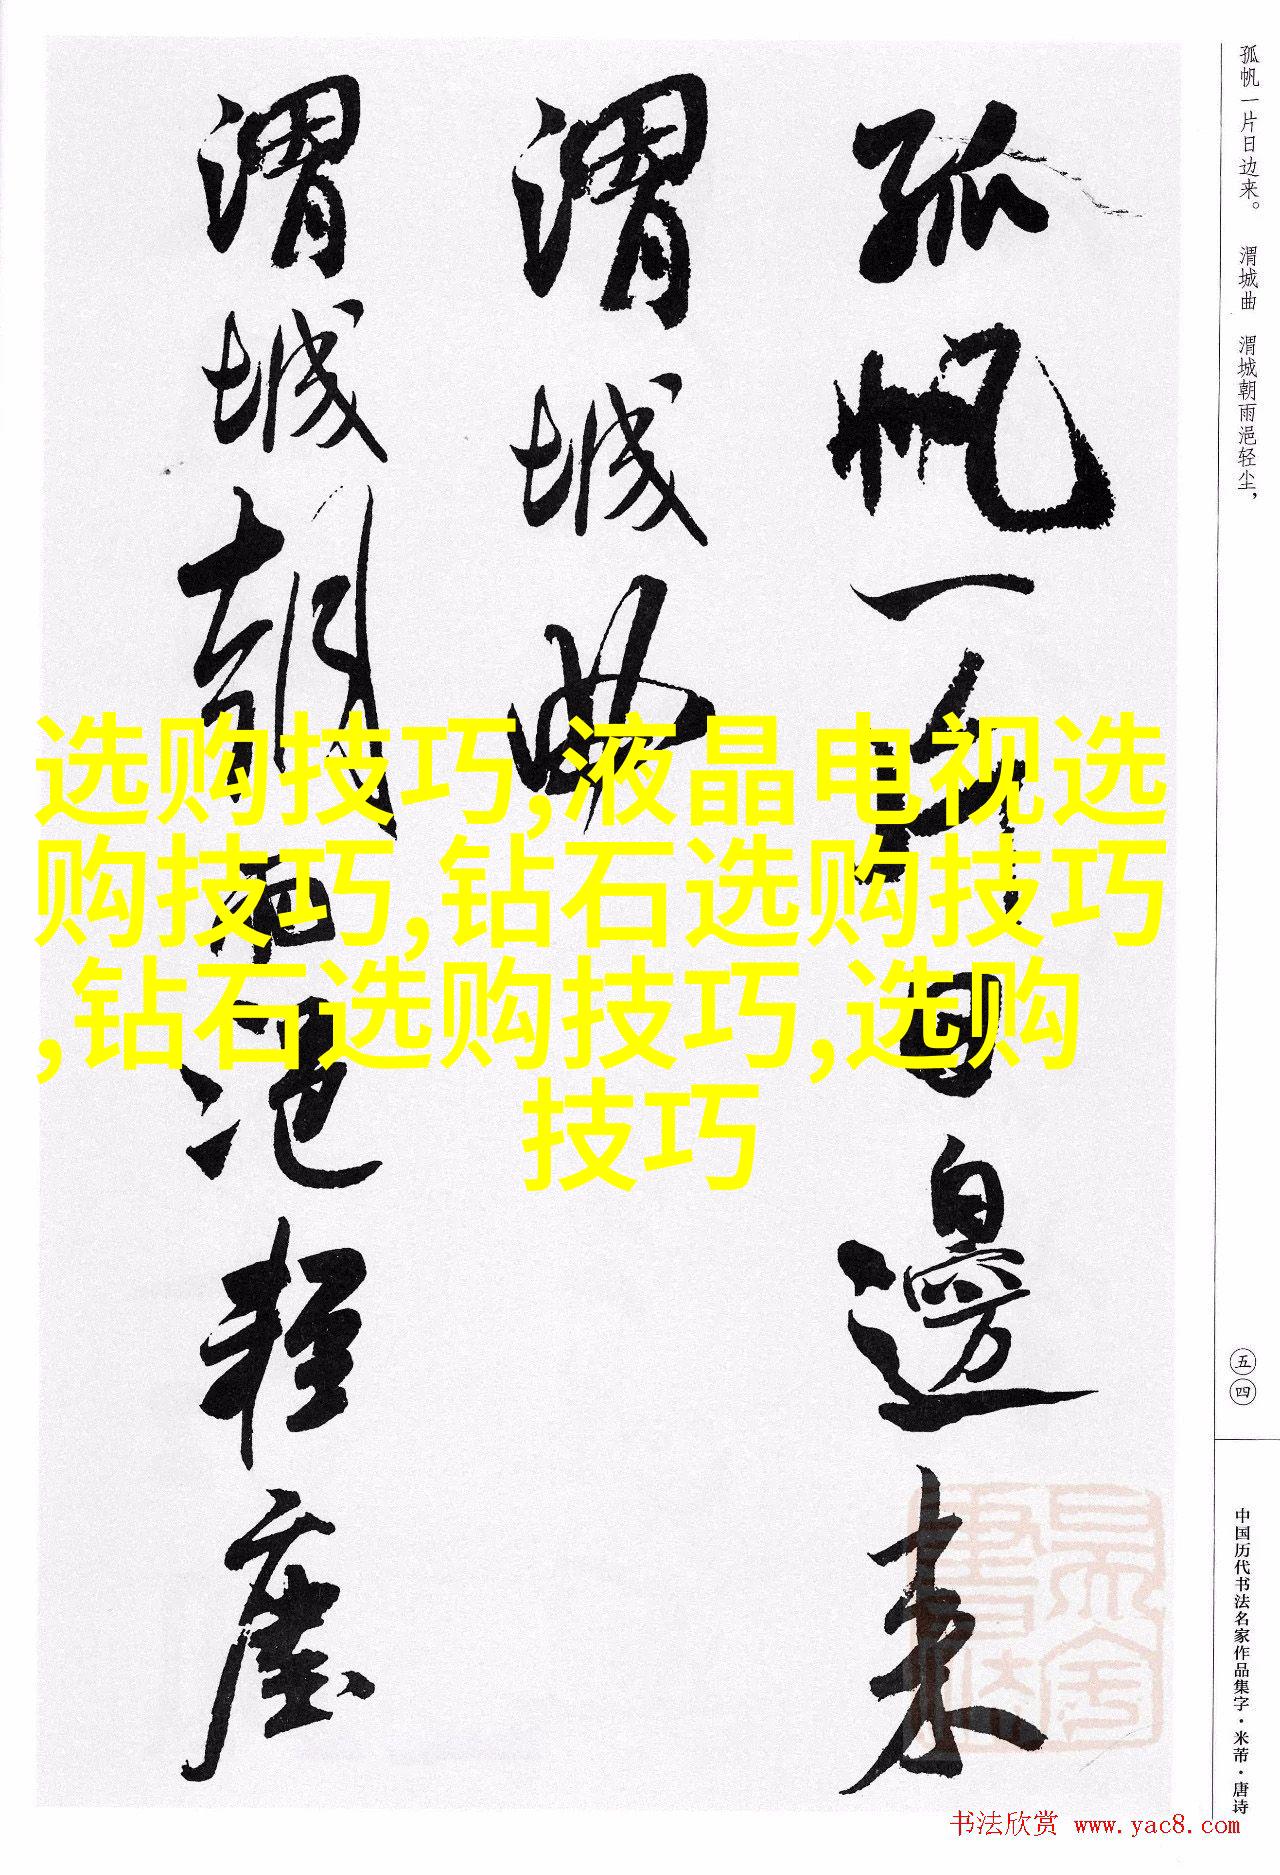 孤帆一片日边来。 渭城曲 渭城朝雨浥轻尘，
孤帆一片日邊来
渭城曲
渭城朝雨浥轻塵
选购技巧,液晶电视选
购技巧,钻石选购技巧
,钻石选购技巧,选购
技巧
五四
中国历代书法名家作品集字·米芾·唐诗
书法欣赏 www.yac8.com